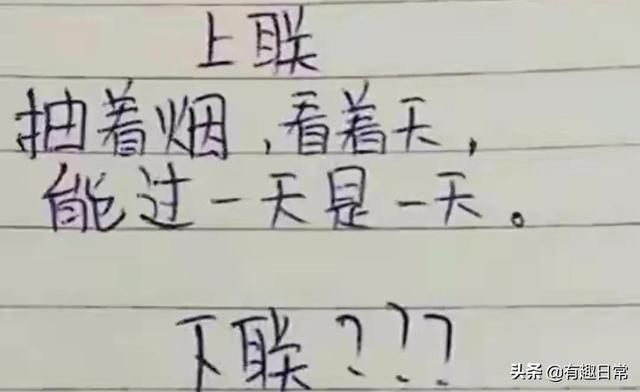 上联
抽着烟,看着天,
能过一天是一天。
下联???
头条 @有趣日常